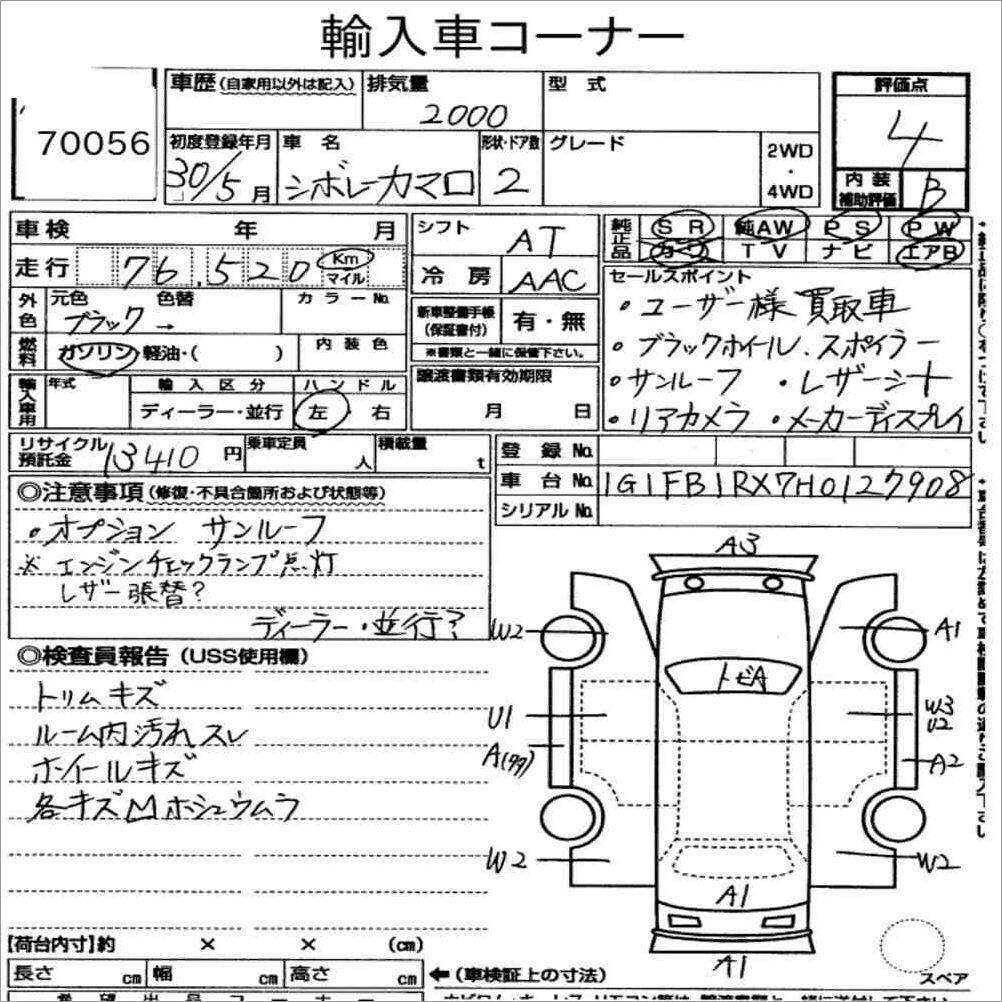 輸入車コーナー
70056
車歴(自家用以外は記入) 排気量 型式 評価点
2000 4
初度登録年月 車名 形状・ドア数 グレード 2WD・4WD
30/5月 シボレーカマロ 2
内装補助評価 B
車検 年 月
シフト AT
純正品 SR 純AW PS PW
カワ TV ナビ エアB
走行 76,520 Km マイル
冷房 AAC
外色 元色 色替 カラーNo.
ブラック→
新車整備手帳(保証書付) 有・無
※書類と一緒に保管下さい。
燃料 ガソリン・軽油・( ) 内装色
輸入車用 年式 輸入区分 ハンドル
ディーラー・並行 左 右
譲渡書類有効期限
月 日
セールスポイント
・ユーザー様買取車
・ブラックホイール.スポイラー
・サンルーフ ・レザーシート
・リアカメラ ・メーカーディスプレイ
リサイクル預託金 13410円 乗車定員 人 積載量 t
登録No.
車台No. 1G1FB1RX7H0127908
シリアルNo.
◎注意事項(修復・不具合箇所および状態等)
・オプション サンルーフ
※エンジンチェックランプ点灯
レザー張替?
ディーラー・並行?
◎検査員報告(USS使用欄)
トリムキズ
ルーム内汚れスレ
ホイールキズ
各キズMホシュウムラ
A3
W2 A1
トビA
U1 W3
U2
A(99) A2
W2 W2
A1
A1
スペア
【荷台内寸】約 × × (cm)
長さ cm 幅 cm 高さ cm ←(車検証上の寸法)